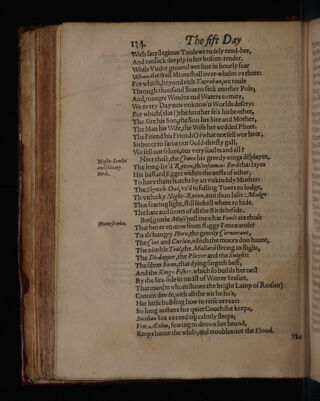 134. The fift Day
With sacrilegious Tools we rudely rend-her,
And ransack deeply in her bosom tender,
While Under ground we liue in hourly fear
When the frail Mines shall over-whelm vs there:
For which, beyond rich we rouse
Through thousand Seas to seek another Pole;
And, maugre Windes and Waters enmity,
We every Day new vnknow'n Worlds descry:
For which (alas!) the brother sels his brother,
The Sire his Son, the Son his Sire and Mother,
The Man his Wife, the Wife her wedded Pheer,
The Friend his Friend: O! what not sell wee heer,
Sith ance to satiat our Gold-thirsty gall,
We sell our selues, our very soules and all?
Night-Fowles and solitary Birds.
Neer these, the Crowe his greedy wings displayes,
The long-liv'd Raven, th'infamous Bird that layes
His bastard Egges within the nests of other,
To have them hatcht by an vnkindely Mother:
The Skritch-Owl, vs'd in falling Towrs to lodge,
Th'vnlucky Night-Raven, and thou lasie Madge
That fearing light, still seekest where to hide,
The hate and scorn of all the Birds beside.
Water-fowles.
But (gentle Muse) tell me what Fowls are those
That but even-now from flaggy Fenns arose?
'Tis th' hungry Hern, the greedy Cormorant,
The Coot and Curlew, which the moors doo haunt,
The nimble Teal, the Mallard strong in flight,
The Di-dapper, the Plover and the Snight:
The silver Swan, that dying singeth best,
And the Kings-Fisher, which so builds her nest
By the Sea-side in midst of Winter Season,
That man (in whom shines the bright Lamp of Reason)
Cannot devise, with all the wit he ha's,
Her little building how to raise or raze:
So long as there her quiet Couch she keeps,
Sicilian Sea exceeding calmly sleeps;
For, Æolus, fearing to drown her brood,
Keeps home the while, and troubles not the Flood.
The